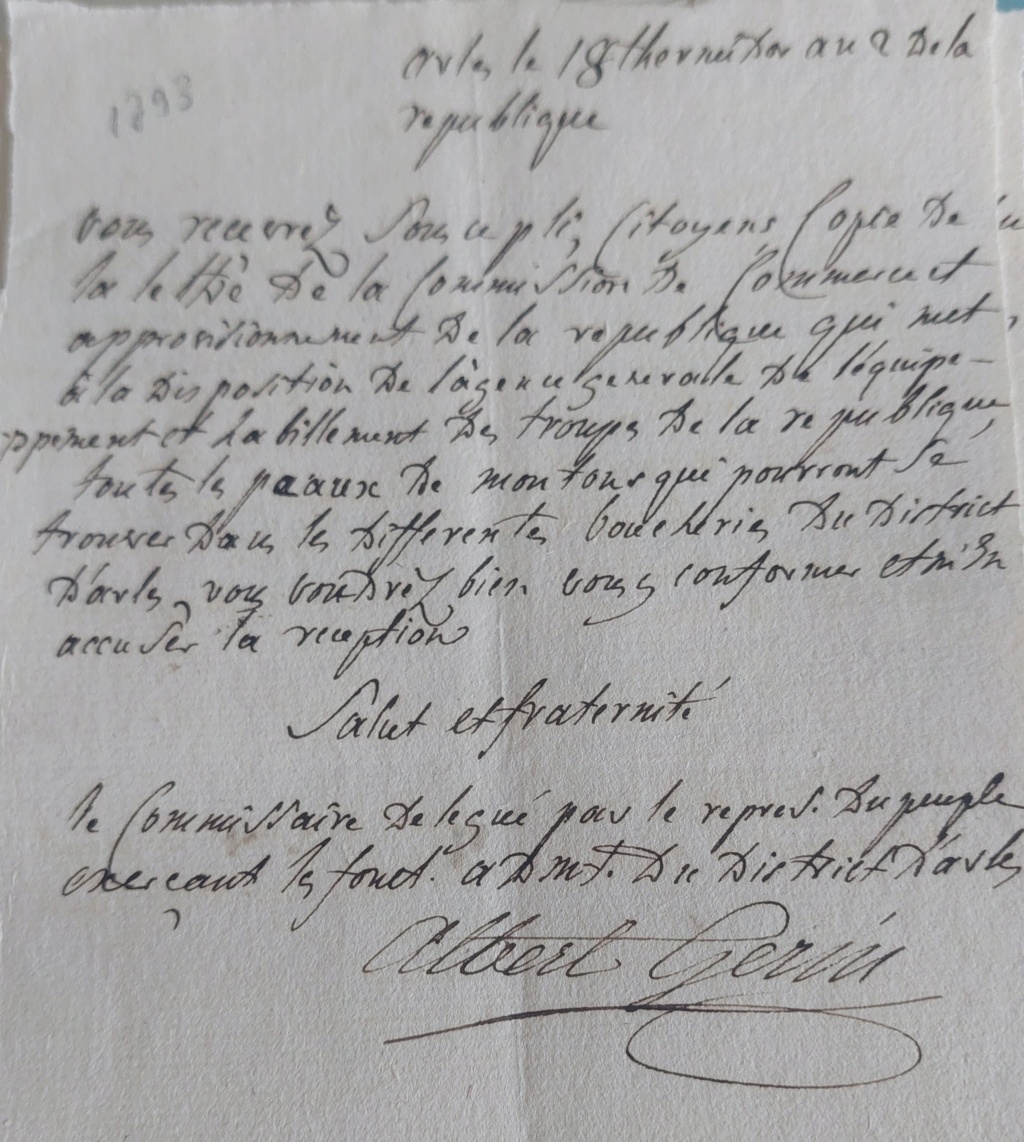 arles le 18 thermidor an 2 De la
republique
1793
vous recevréz Sous ce pli, Citoyens Copie De
la lettre De la Commission De Commerce et
approvisionnement De la republique qui met
à la Disposition De l'agence generale De l'équipe-
ppement et habillement Des troupes De la republique,
toutes les peaux De moutons qui pourront Se
trouver Dans les Differentes boucheries Du District
D'arles, vous voudréz bien vous y conformer et m'En
accuser la reception
Salut et fraternité
le Commissaire Delegué par le repres. Du peuple
exerçant les fonct. aDmt. Du District D'arles
Albert Gerin